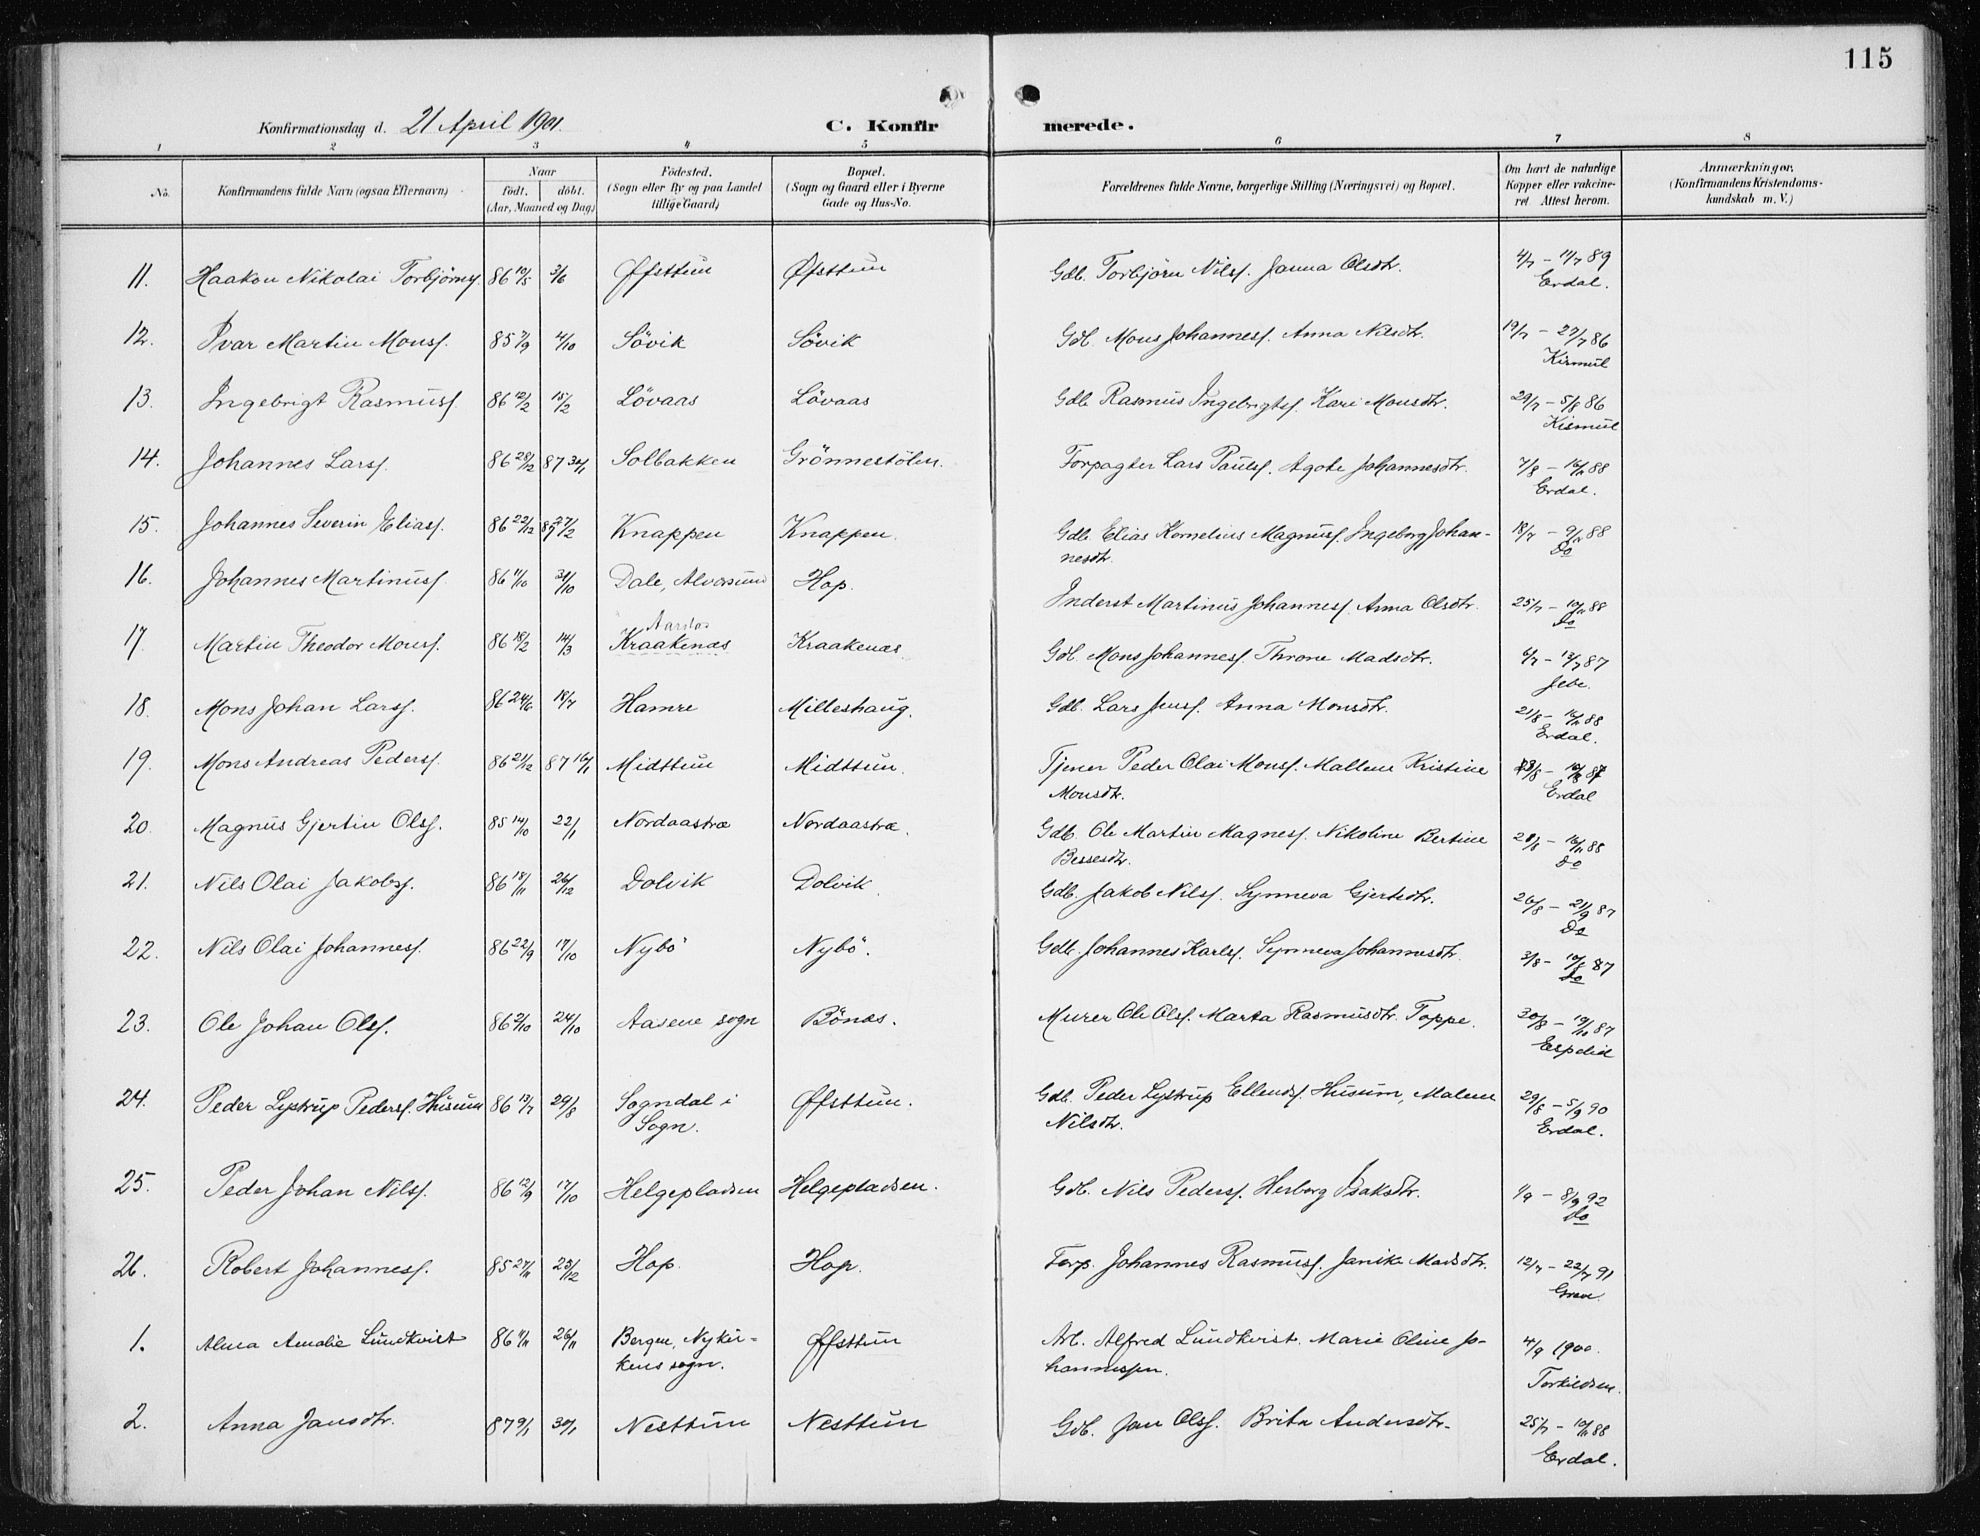 115
Konfirmationsdag d. 21 April 1901.
C. Konfirmerede.
1 2 3 4 5 6 7 8
No. Konfirmandens fulde Navn (ogsaa Efternavn) Naar født. døbt. (Aar, Maaned og Dag) Födested. (Sogn eller By og paa Landet tillige Gaard) Bopæl. (Sogn og Gaard eller i Byerne Gade og Hus-No. Forældrenes fulde Navne, borgerlige Stilling (Næringsvei) og Bopæl. Om havt de naturlige Kopper eller vakcineret Attest herom. Anmærkninger. (Konfirmandens Kristendomskundskab m. V.)
11. Haakon Nikolai Torbjörns. 86 10/5 3/6 Øfsttun Øfsttun Gdb. Torbjörn Nilss. Janna Olsdtr. 4/7 - 11/7 89
Erdal.
12. Ivar Martin Monss. 85 7/9 4/10 Sövik Sövik Gdb. Mons Johanness. Anna Nilsdtr. 19/7 - 27/7 86
Kismul
13. Ingebrigt Rasmuss. 86 12/2 15/2 Lövaas Lövaas Gdb. Rasmus Ingebrigts. Kari Monsdtr. 29/7 - 5/8 86
Kismul
14. Johannes Larss. 86 28/12 87 Solbakken Grönnestölen. Forpagter Lars Pauls. Agote Johannesdtr. 7/8 - 88
Erdal.
15. Johannes Severin Eliass. 86 22/12 87 27/2 Knappen Knappen. Gdb. Elias Kornelius Magnuss. Ingeborg Johan-
nesdtr. 18/7 - 88
Do
16. Johannes Martinuss. 86 11/10 31/10 Dale, Alversund Hop. Inderst Martinus Johanness. Anna Olsdtr. 25/7 - 88
Do
Aarstad
17. Martin Theodor Monss. 86 18/2 14/3 Kraakenæs Kraakenæs Gdb. Mons Johanness. Throne Madsdtr. 6/7 - 13/7 87
Jebe.
18. Mons Johan Larss. 86 24/6 18/7 Hamre Milleshaug. Gdb. Lars Jenss. Anna Monsdtr. 21/8 - 88
Erdal.
19. Mons Andreas Peders. 86 21/12 87 16/1 Midttun Midttun. Tjener Peder Olai Monss. Mallene Kristine
Monsdtr. 87
Erdal
20. Magnus Gjertin Olss. 85 14/10 22/1 Nordaastræ Nordaastræ. Gdb. Ole Martin Magness. Nikoline Bertine
Bessesdtr. 28/8 - 88
Do
21. Nils Olai Jakobs. 86 18/11 26/12 Dolvik Dolvik Gdb. Jakob Nilss. Synneva Gjertsdtr. 26/8 - 21/9 87
Do
22. Nils Olai Johanness. 86 22/9 17/10 Nybö Nybö. Gdb. Johannes Karls. Synneva Johannesdtr. 3/8 - 10/8 87
Do
23. Ole Johan Olss. 86 2/10 24/10 Aasene sogn Bönæs. Murer Ole Olss. Marta Rasmusdtr. Toppe. 30/8 - 19/10 87
Espelid
24. Peder Lystrup Peders. Husum 86 13/7 29/8 Sogndal i
Sogn. Øfsttun. Gdb. Peder Lystrup Ellends. Husum, Malene
Nilsdtr. 29/8 - 5/9 90
Erdal.
25. Peder Johan Nilss. 86 12/9 17/10 Helgepladsen Helgepladsen. Gdb. Nils Peders. Herborg Isaksdtr. 1/9 - 8/9 92
Do
26. Robert Johanness. 85 27/11 25/12 Hop. Hop. Forp. Johannes Rasmuss. Janike Madsdtr. 12/7 - 22/7 91
Grave.
1. Alma Amalie Lundkvist 86 26/11 Bergen, Nykir-
kens sogn. Øfsttun Arb. Alfred Lundkvist. Marie Oline Jo-
hannessen. 4/9 1900.
Torkildsen.
2. Anna Jansdtr. 87 9/1 30/1 Nesttun Nesttun Gdb. Jan Olss. Brita Andersdtr. 25/7 - 88
Erdal.